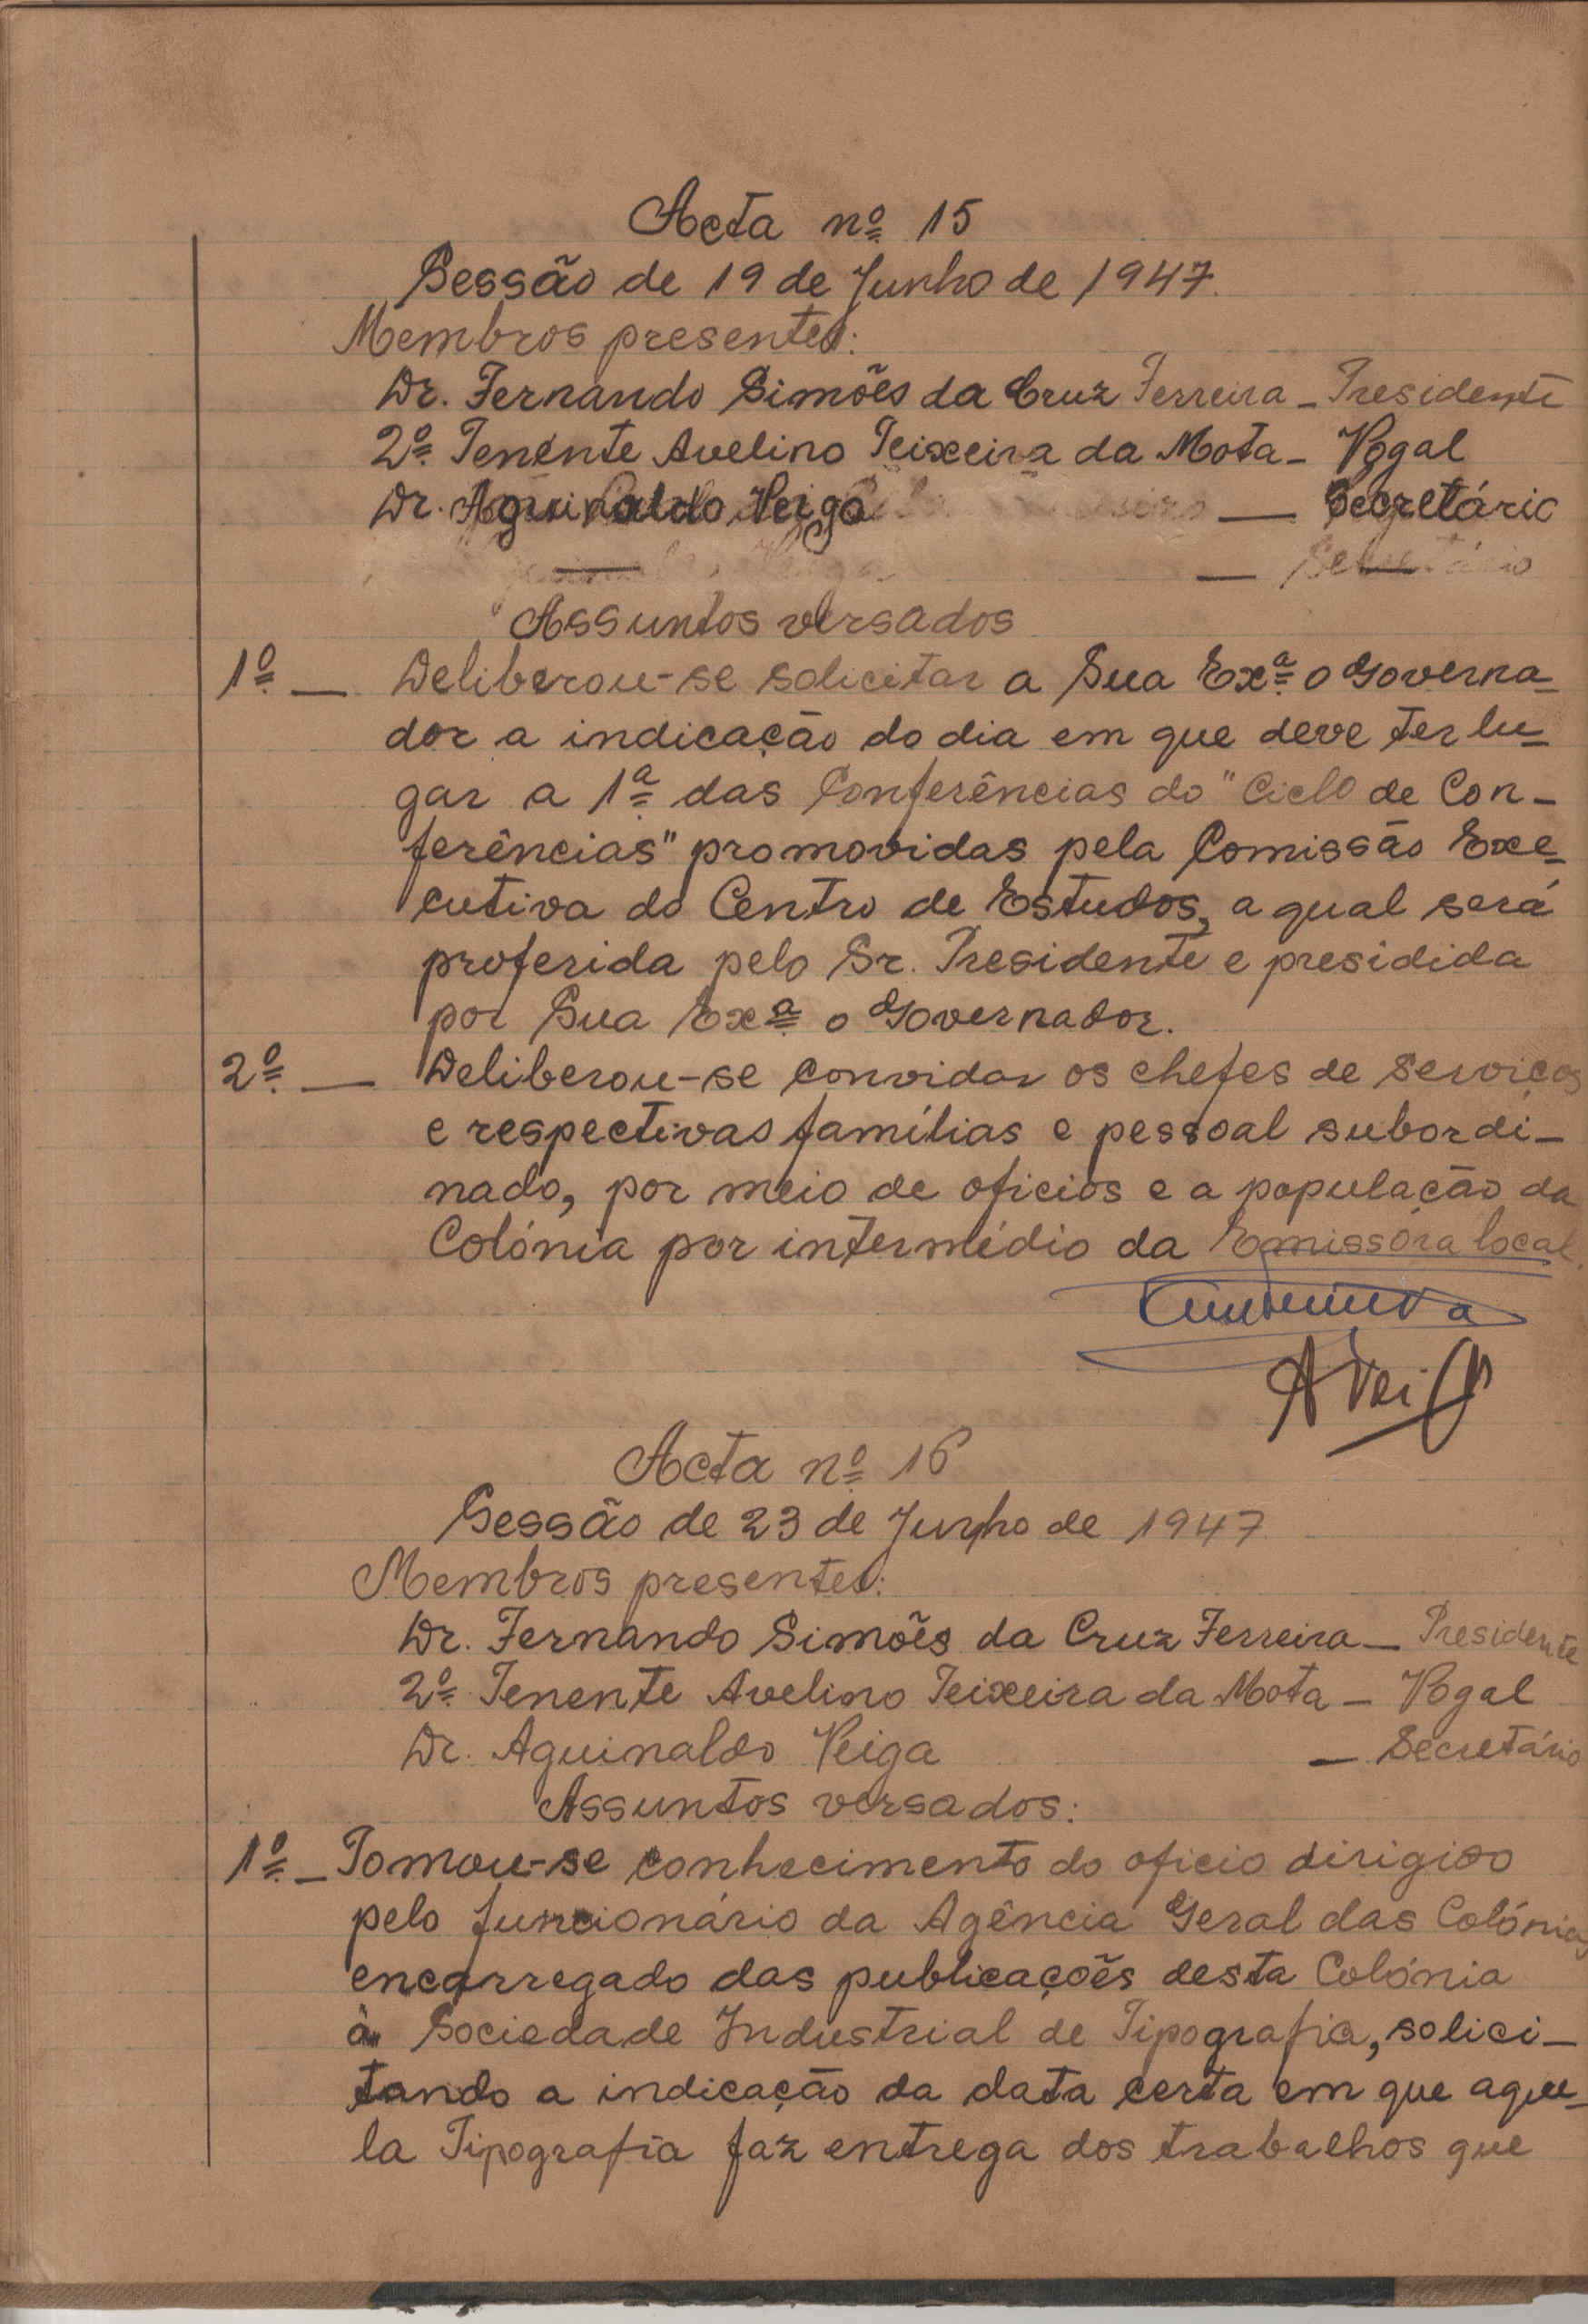 Acta nº 15
Sessão de 19 de Junho de 1947.
Membros presentes:
Dr. Fernando Simões da Cruz Ferreira - Presidente
2º Tenente Avelino Teixeira da Mota - Vogal
Dr. Aguinaldo Veiga — Secretário
— Secretário
Assuntos versados
1º — Deliberou-se solicitar a Sua Exª o Governa-
dor a indicação do dia em que deve ter lu-
gar a 1ª das Conferências do "Ciclo de Con-
ferências" promovidas pela Comissão Exe-
cutiva do Centro de Estudos, a qual será
proferida pelo Sr. Presidente e presidida
por Sua Exª o Governador.
2º — Deliberou-se convidar os chefes de serviços
e respectivas famílias e pessoal subordi-
nado, por meio de oficios e a população da
Colónia por intermédio da Emissóra local.
AVeiga
Acta nº 16
Sessão de 23 de Junho de 1947
Membros presentes:
Dr. Fernando Simões da Cruz Ferreira - Presidente
2º Tenente Avelino Teixeira da Mota - Vogal
Dr. Aguinaldo Veiga — Secretário
Assuntos versados:
1º - Tomou-se conhecimento do oficio dirigido
pelo funcionário da Agência Geral das Colónias
encarregado das publicações desta Colónia
à Sociedade Industrial de Tipografia, solici-
tando a indicação da data certa em que aque-
la Tipografia faz entrega dos trabalhos que